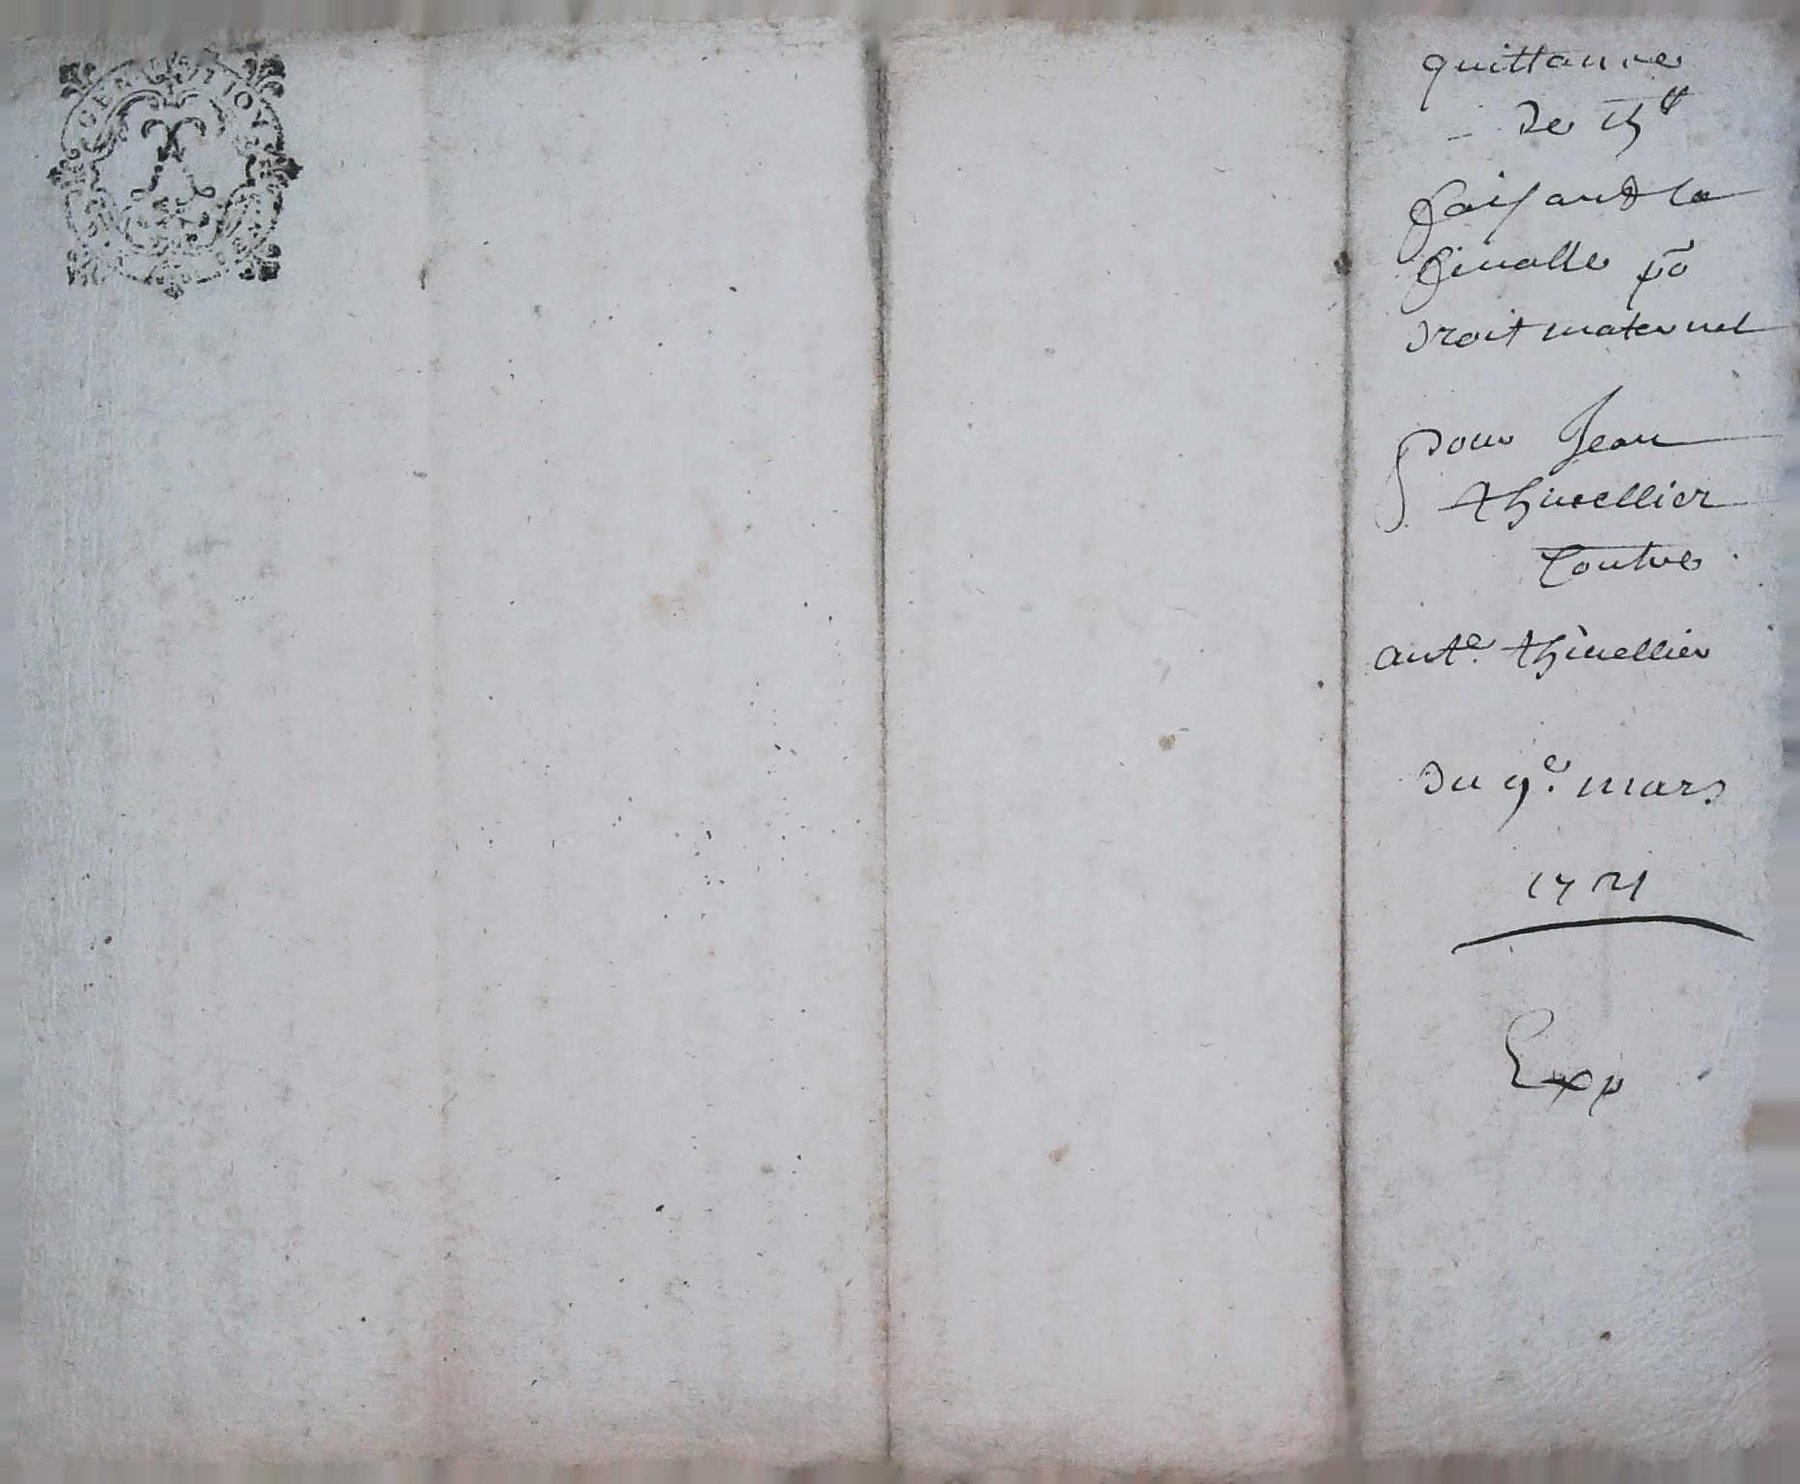 quittance
de 15 ₶
faisant la
finalle po
droit maternel
pour Jean
thivellier
Contre
ant.e thivellier
du 9.e mars
1721
Exp